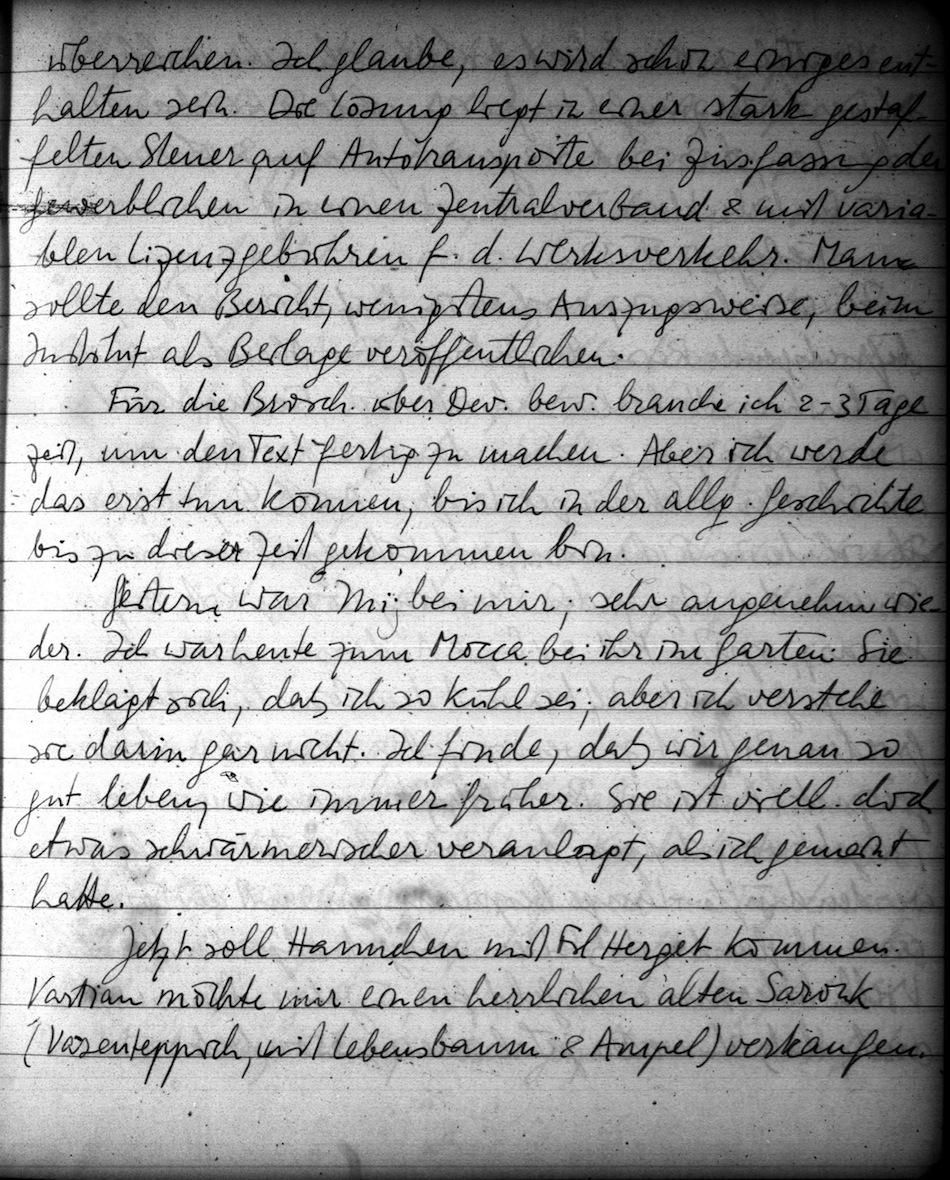 überreichen. Ich glaube, es wird schon einiges ent-
halten sein. Die Lösung liegt in einer stark gestaf-
felten Steuer auf Autotransporte bei Zus.fassung der
gewerblichen in einen Zentralverband & mit varia-
blen Lizenzgebühren f. d. Werksverkehr. Man
sollte den Bericht, wenigstens Auszugsweise, beim
Institut als Beilage veröffentlichen.
Für die Brosch. über Dev. bew. brauche ich 2-3 Tage
Zeit, um den Text fertig zu machen. Aber ich werde
das erst tun können, bis ich in der allg. Geschichte
bis zu dieser Zeit gekommen bin.
Gestern war Mij bei mir; sehr angenehm wie-
der. Ich war heute zum Mocca bei ihr im Garten. Sie
beklagt sich, daß ich so kühl sei; aber ich verstehe
sie darin gar nicht. Ich finde, daß wir genau so
gut leben, wie immer früher. Sie ist viell. doch
etwas schwärmerischer veranlagt, als ich gemeint
hatte.
Jetzt soll Hannchen mit Frl Herget kommen.
Vastian möchte mir einen herrlichen alten Sarouk
(Vasenteppich, mit Lebensbaum & Ampel) verkaufen.